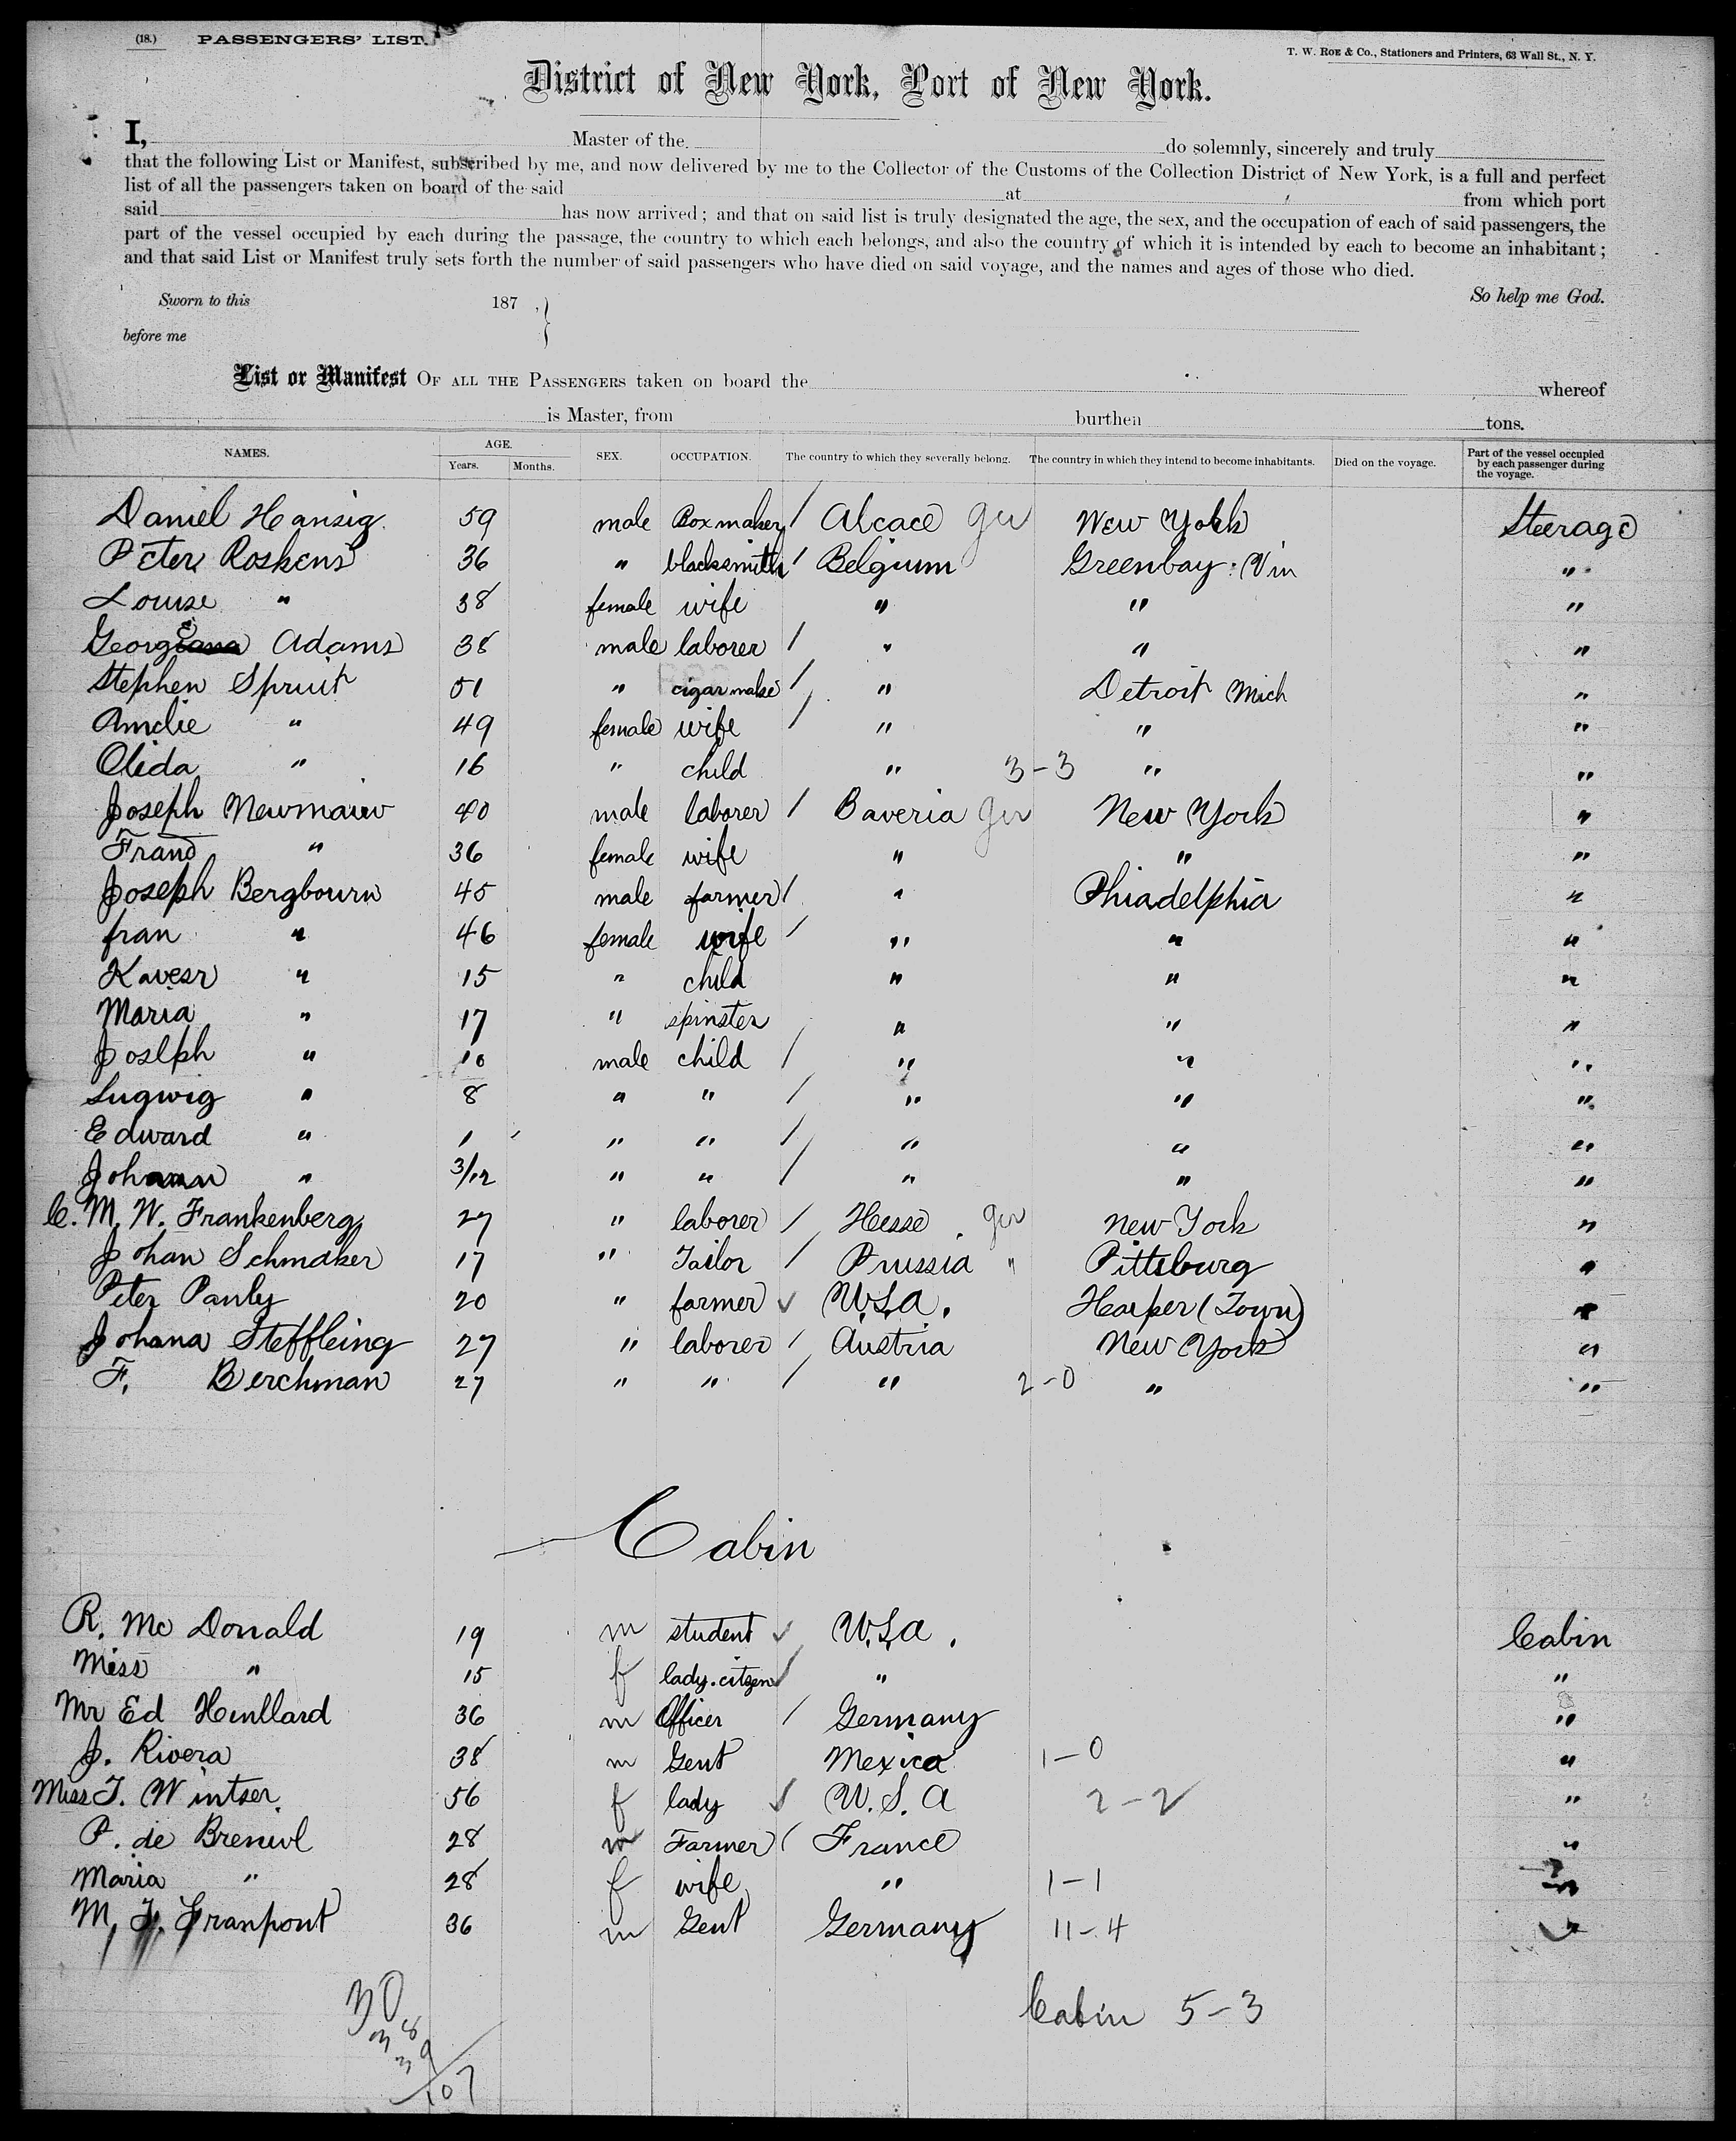 (18.) PASSENGERS' LIST.
T. W. ROE & Co., Stationers and Printers, 63 Wall St., N. Y.
District of New York, Port of New York.
I, Master of the do solemnly, sincerely and truly
that the following List or Manifest, subscribed by me, and now delivered by me to the Collector of the Customs of the Collection District of New York, is a full and perfect
list of all the passengers taken on board of the said at from which port
said has now arrived; and that on said list is truly designated the age, the sex, and the occupation of each of said passengers, the
part of the vessel occupied by each during the passage, the country to which each belongs, and also the country of which it is intended by each to become an inhabitant;
and that said List or Manifest truly sets forth the number of said passengers who have died on said voyage, and the names and ages of those who died.
Sworn to this 187 , } So help me God.
before me
List or Manifest OF ALL THE PASSENGERS taken on board the whereof
is Master, from burthen tons.
NAMES. AGE. Years. Months. SEX. OCCUPATION. The country to which they severally belong. The country in which they intend to become inhabitants. Died on the voyage. Part of the vessel occupied by each passenger during the voyage.
Daniel Hansig. 59 male Box maker / Alcace Ger New York Steerage
Peter Roskens 36 " blacksmith / Belgium Greenbay: Win "
Louise " 38 female wife " " "
George Adams 38 male laborer / " " "
Stephen Spruit 51 " cigar make / " Detroit Mich "
Amelie " 49 female wife / " " "
Olida " 16 " child " 3-3 " "
Joseph Newmaier 40 male laborer / Baveria Ger New York "
Franc " 36 female wife " " "
Joseph Bergbourn 45 male farmer / " Phiadelphia "
fran " 46 female wife / " " "
Kavesr " 15 " child " " "
Maria " 17 " spinster " " "
Joslph " 10 male child / " " "
Lugwig " 8 " " / " " "
Edward " 1 " " / " " "
Johann " 3/12 " " / " " "
C. M. W. Frankenberg 27 " laborer / Hesse. Ger New York "
Johan Schmaker 17 " Tailor / Prussia " Pittsburg "
Peter Pauly 20 " farmer ✓ U.S.A. Harper (Town) "
Johana Steffleing 27 " laborer / Austria New York "
F. Berchman 27 " " / " 2-0 " "
Cabin
R. Mc Donald 19 m student ✓ U.S.A. Cabin
Miss " 15 f lady. citzen ✓ " "
Mr Ed Henllard 36 m Officer / Germany "
J. Rivera 38 m Gent Mexico 1-0 "
Miss T. Wintser 56 f lady ✓ U.S.A 2-2 "
P. de Brenivl 28 m Farmer / France "
Maria " 28 f wife " 1-1 "
M, J. Granpont 36 m Gent Germany 11-4 "
30
38
39
107
Cabin 5-3